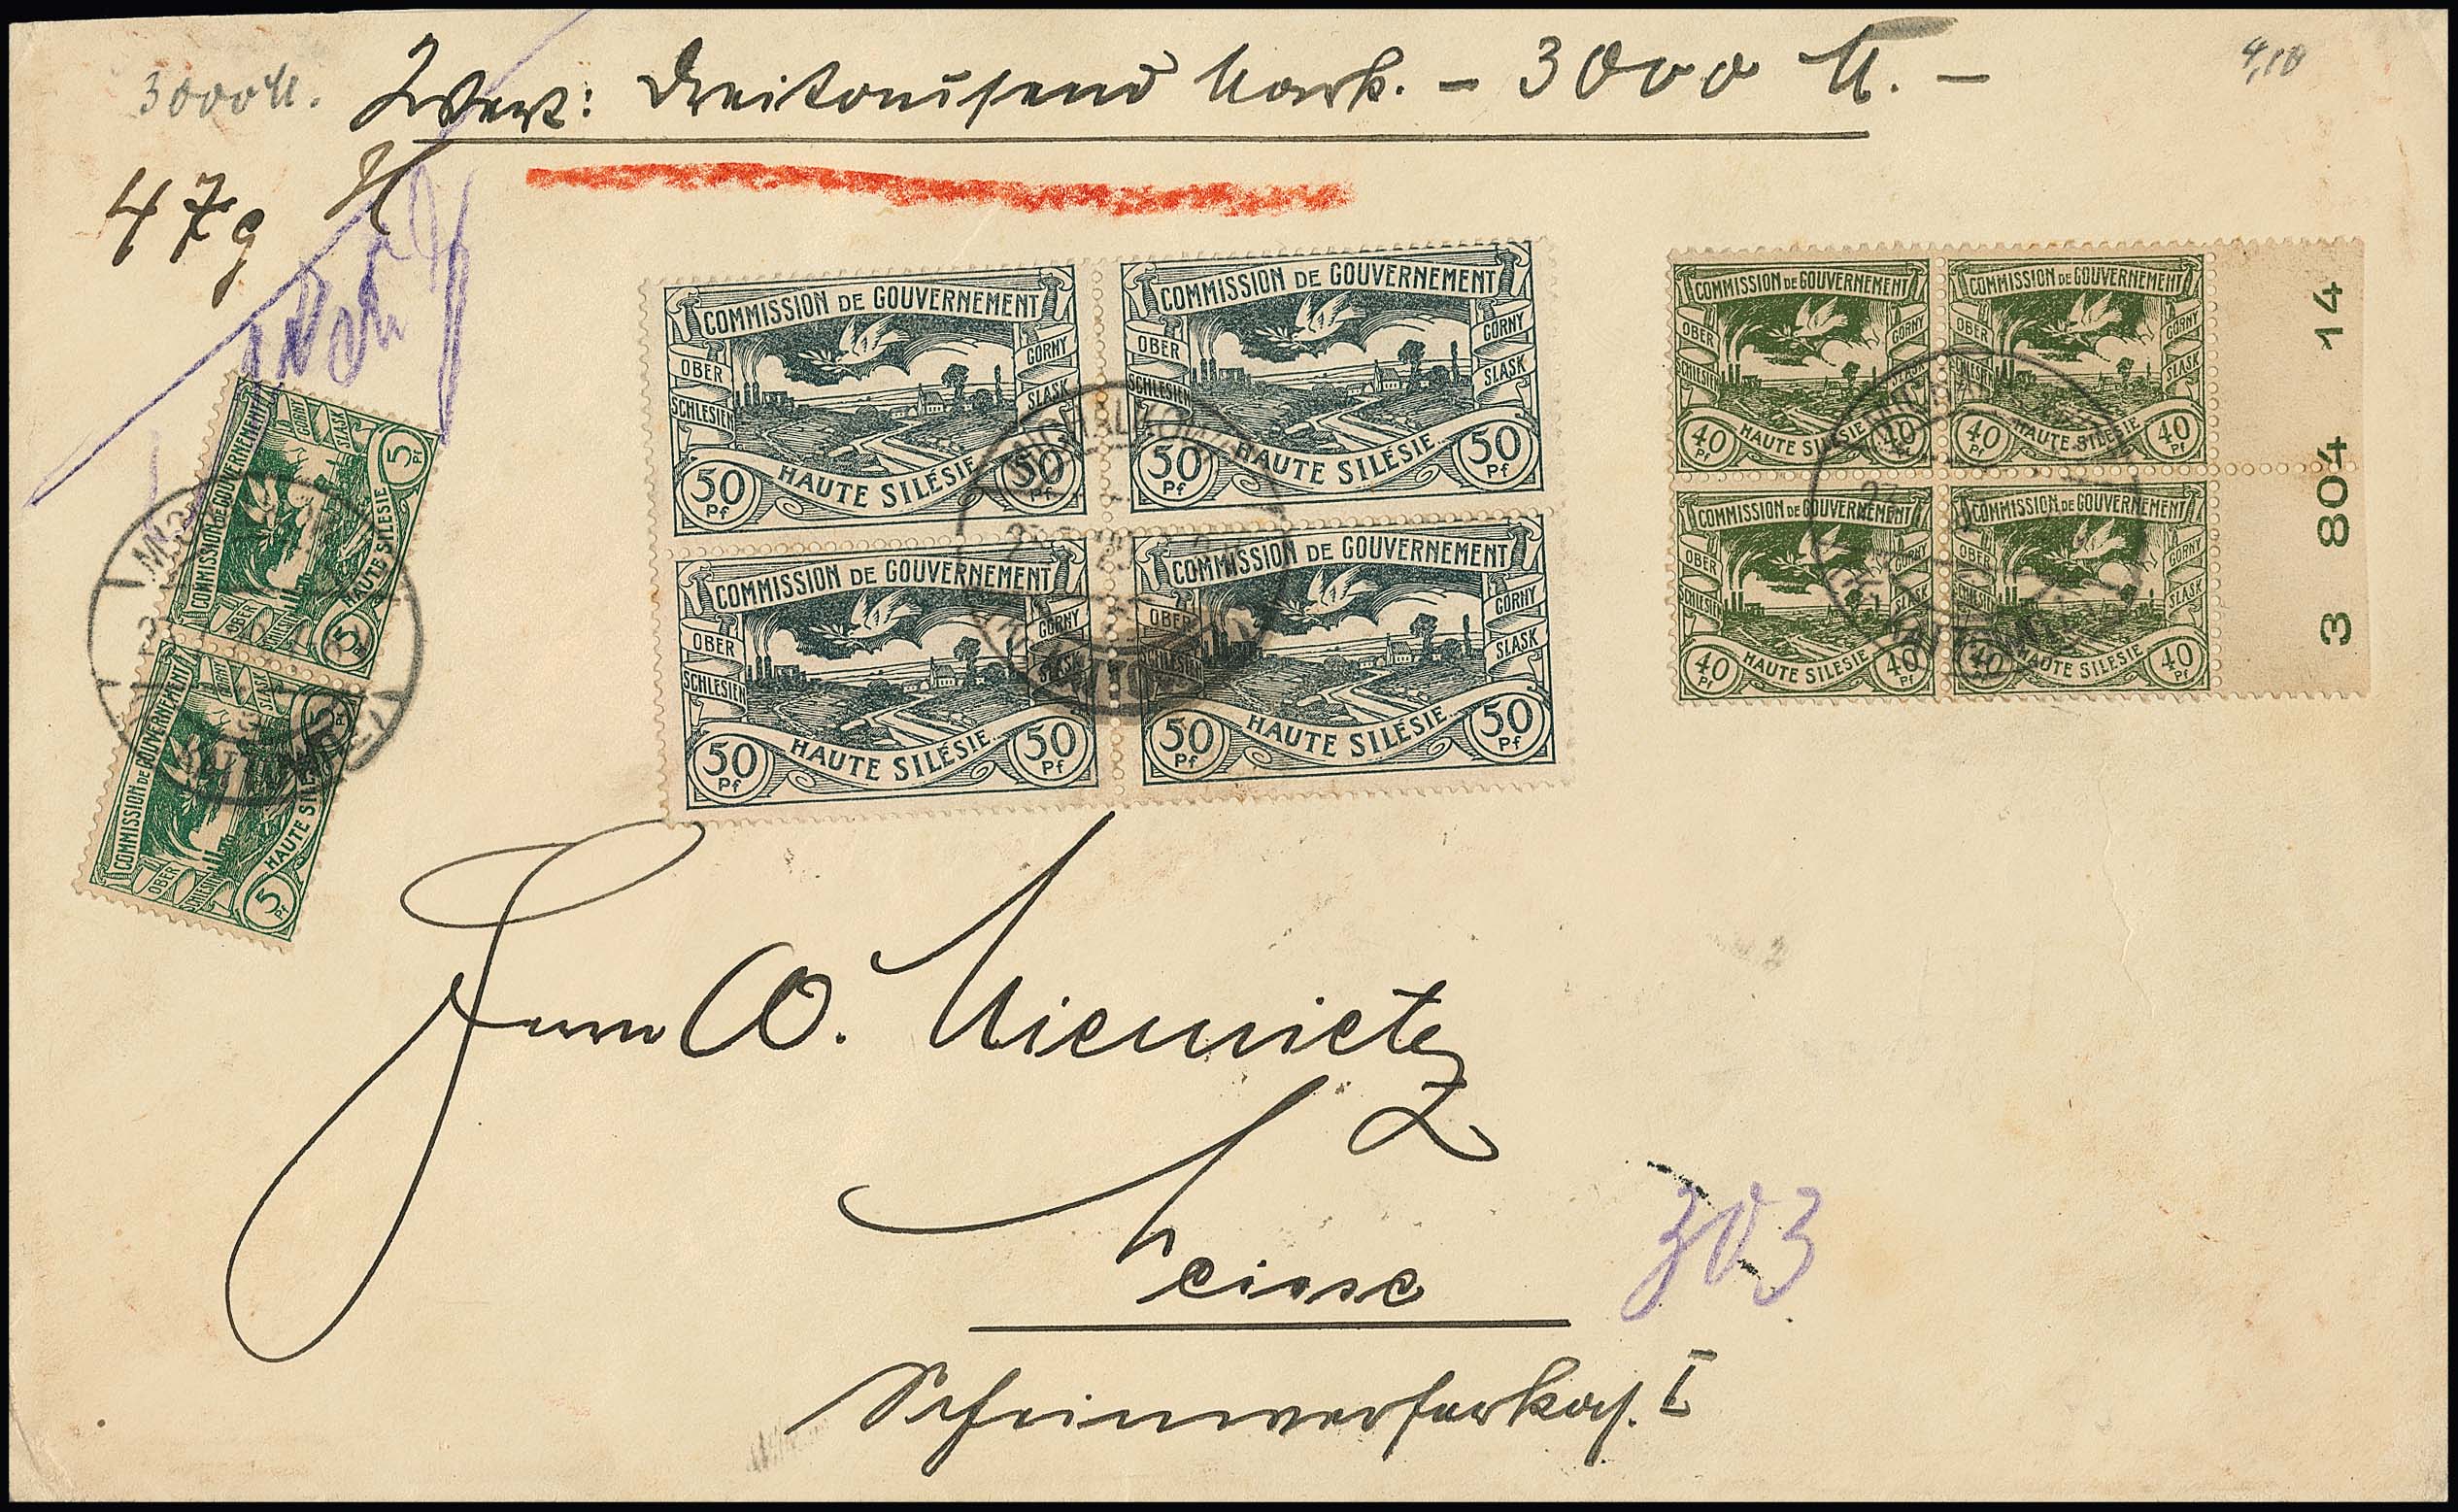 3000 M. Wert: Dreitausend Mark. – 3000 M. – 4,10
47 g
COMMISSION DE GOUVERNEMENT
OBER SCHLESIEN
GORNY SLASK
50 Pf HAUTE SILÉSIE 50 Pf
COMMISSION DE GOUVERNEMENT
OBER SCHLESIEN
GORNY SLASK
50 Pf HAUTE SILÉSIE 50 Pf
COMMISSION DE GOUVERNEMENT
OBER SCHLESIEN
GORNY SLASK
50 Pf HAUTE SILÉSIE 50 Pf
COMMISSION DE GOUVERNEMENT
OBER SCHLESIEN
GORNY SLASK
50 Pf HAUTE SILÉSIE 50 Pf
COMMISSION DE GOUVERNEMENT
OBER SCHLESIEN
GORNY SLASK
40 Pf HAUTE SILÉSIE 40 Pf
COMMISSION DE GOUVERNEMENT
OBER SCHLESIEN
GORNY SLASK
40 Pf HAUTE SILÉSIE 40 Pf
COMMISSION DE GOUVERNEMENT
OBER SCHLESIEN
GORNY SLASK
40 Pf HAUTE SILÉSIE 40 Pf
COMMISSION DE GOUVERNEMENT
OBER SCHLESIEN
GORNY SLASK
40 Pf HAUTE SILÉSIE 40 Pf
3 804 14
COMMISSION DE GOUVERNEMENT
OBER SCHLESIEN
GORNY SLASK
5 Pf HAUTE SILÉSIE 5 Pf
COMMISSION DE GOUVERNEMENT
OBER SCHLESIEN
GORNY SLASK
5 Pf HAUTE SILÉSIE 5 Pf
Herrn O. Niemietz
Neisse
303
Scheinwerferkas. I